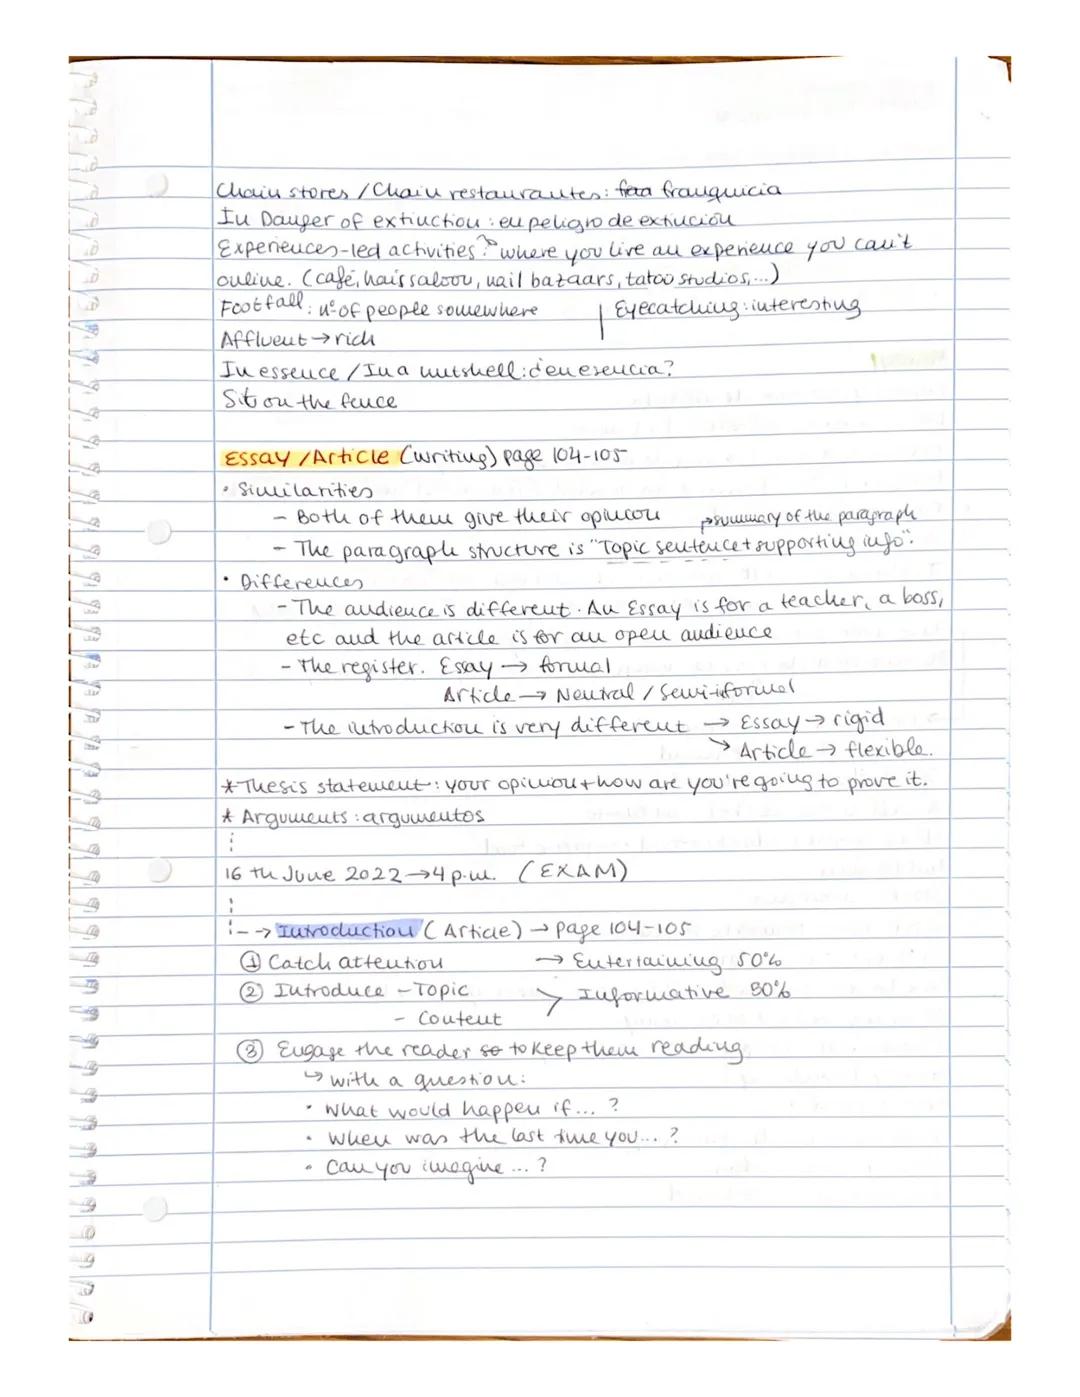 Chain stores / Chain restaurantes: franquicia
In Danger of extinction: en peligro de extinción
Experiences-led activities: where you live an experience you can't
online. (café, hais saloon, nail bazaars, tatoo studios,...)
Footfall: nº of people somewhere | Eyecatching: interesting
Affluent → rich
In essence / In a nutshell: ¿en esencia?
Sit on the fence
Essay / Article (writing) page 104-105
• Similarities
- Both of them give their opinion → summary of the paragraph
- The paragraph structure is "Topic sentence + supporting info".
• Differences
- The audience is different. An Essay is for a teacher, a boss,
etc and the article is for an open audience
- The register. Essay → formal
Article → Neutral / Semi-informal
- The introduction is very different → Essay → rigid
→ Article → flexible.
* Thesis statement: your opinion + how are you're going to prove it.
* Arguments: argumentos
16 th June 2022 → 4 p.m. (EXAM)
--> Introduction (Article) → page 104-105
① Catch attention → Entertaining 50%
② Introduce - Topic > Informative 50%
- Content
③ Engage the reader so to keep them reading
↳ with a question:
• What would happen if... ?
• When was the last time you... ?
• Can you imagine ... ?